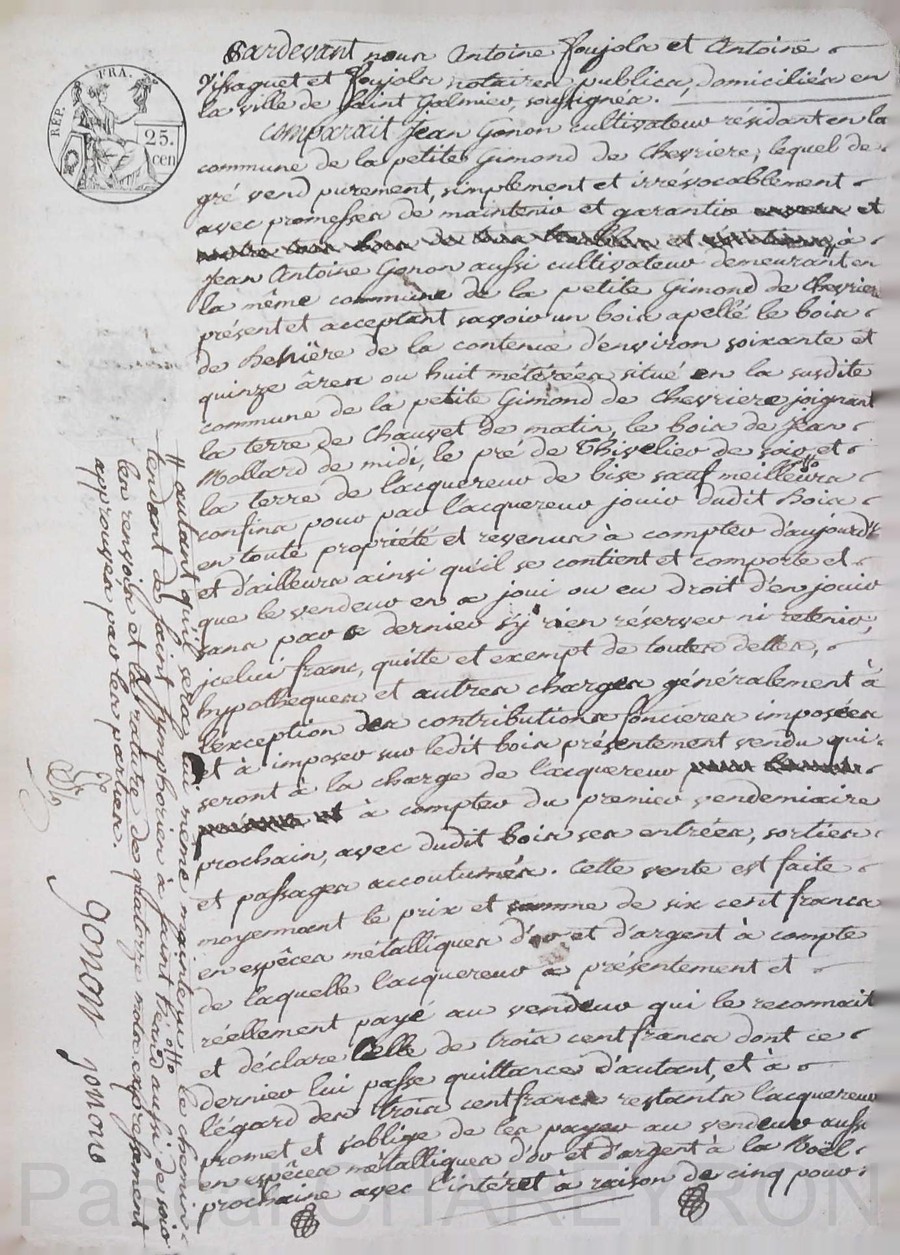 REP. FRA.
25. cen
Pardevant nous Antoine Poujola et Antoine
et Poujola notaires publics, domiciliés en
la ville de Saint Galmier, soussignés.
Comparait Jean Gonon cultivateur résidant en la
commune de la petite Gimond de Chevriere, lequel de
gré vend purement, simplement et irrévocablement
avec promesses de maintenir et garantir
et à
Jean Antoine Gonon aussi cultivateur demeurant en
la même commune de la petite Gimond de Chevriere
présent et acceptant savoir un bois apellé le bois
de de la contenue d'environ soixante et
quinze âres ou huit métérées situé en la susdite
commune de la petite Gimond de Chevriere joignant
la terre de Chauvet de matin, le bois de Jean
Mollard de midi, le pré de Thivelier de soir, et
la terre de l'acquereur de bise sauf meilleurs
confins pour par l'acquereur jouir dudit Bois
en toute propriété et revenus à compter d'aujourd'h
et d'ailleurs ainsi qu'il se contient et comporte et
que le vendeur en a joui ou eu droit d'en jouir
sans par ce dernier s'y rien réserver ni retenir,
jcelui franc, quitte et exempt de toutes dettes,
hypotheques et autres charges généralement à
l'exception des contributions foncieres imposées
et à imposer sur ledit bois présentement vendu qui
seront à la charge de l'acquereur
à compter du premier vendemiaire
prochain, avec dudit bois ses entrées, sorties
et passages accoutumés. Cette vente est faite
moyennant le prix et somme de six cent francs
en espêces métalliques d'or et d'argent à compte
de laquelle l'acquereur a présentement et
réellement payé au vendeur qui le reconnait
et déclare Celle de trois cent francs dont ce
dernier lui passe quittance d'autant, et à
l'égard des trois cent francs restants l'acquereur
promet et s'oblige de les payer au vendeur aussi
en espêces métalliques d'or et d'argent à la Noël
prochaine avec l'intérêt à raison de cinq pour
# autant qu'il sera lui même maintenu
le chemin
tendent de saint Symphorien à saint heand aussi de soir
les renvois et la rature de quatorze mots expressément
approuvés par les parties.
gonon gonon
Pascal CHAREYRON